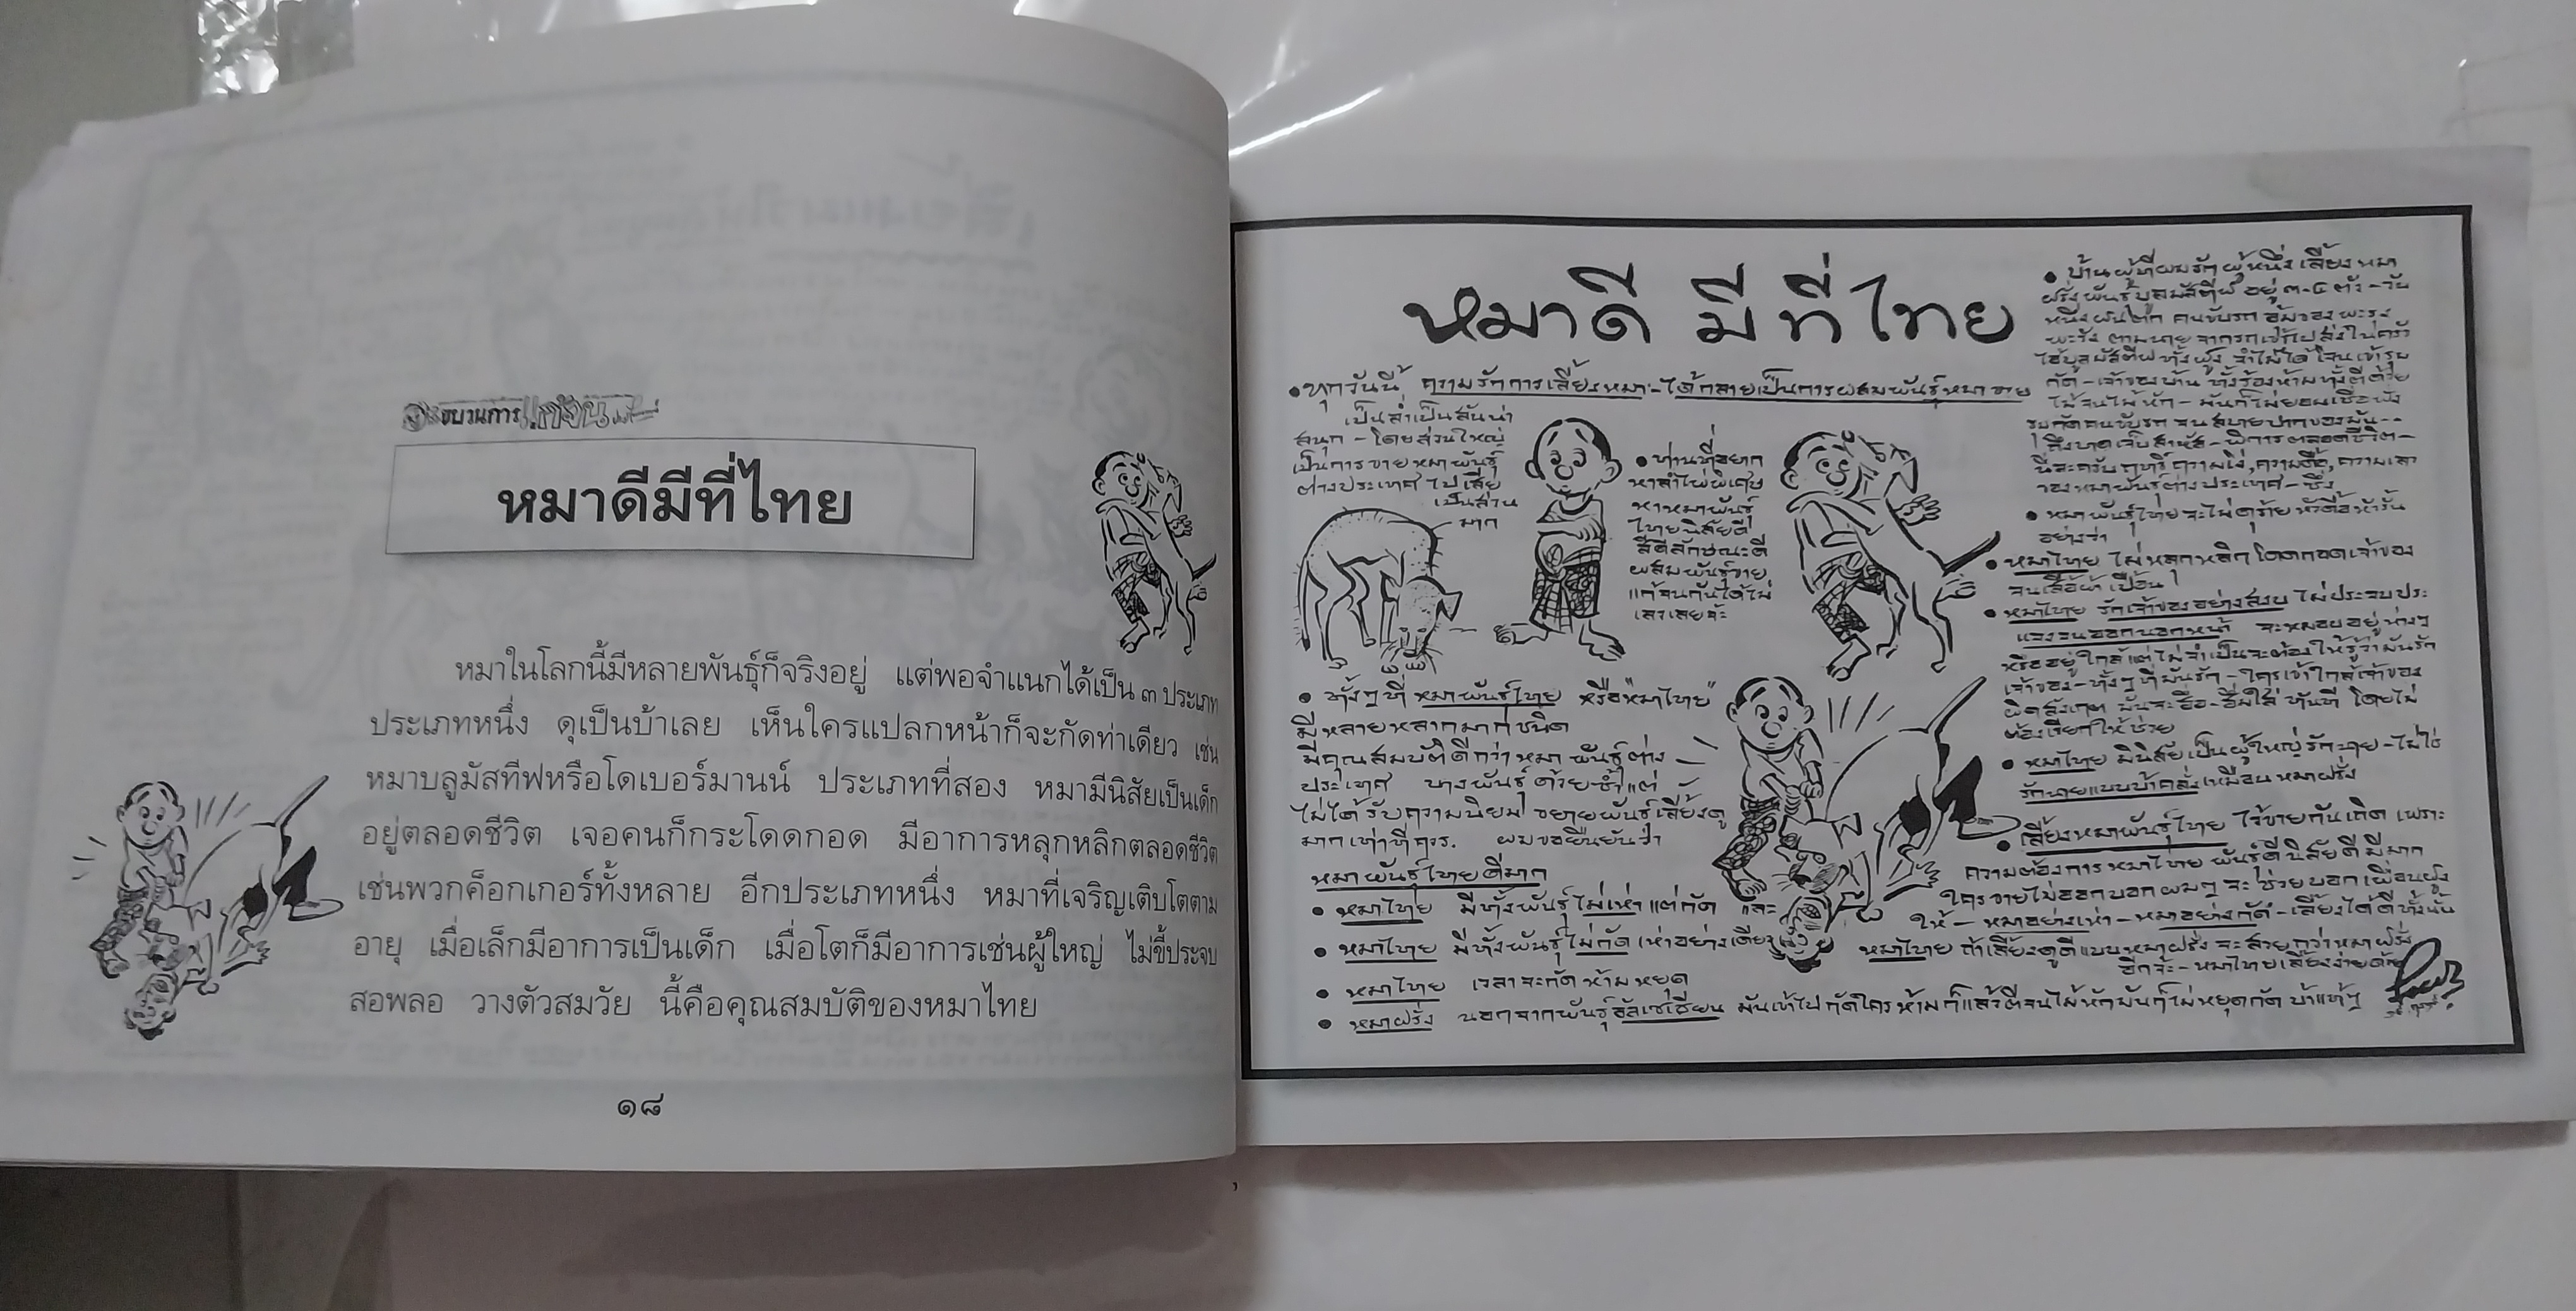 ขบวนการแก้จน
หมาดีมีที่ไทย
หมาในโลกนี้มีหลายพันธุ์ก็จริงอยู่ แต่พอจำแนกได้เป็น ๓ ประเภท
ประเภทหนึ่ง ดุเป็นบ้าเลย เห็นใครแปลกหน้าก็จะกัดท่าเดียว เช่น
หมาบลูมัสทีฟหรือโดเบอร์มานน์ ประเภทที่สอง หมามีนิสัยเป็นเด็ก
อยู่ตลอดชีวิต เจอคนก็กระโดดกอด มีอาการหลุกหลิกตลอดชีวิต
เช่นพวกค็อกเกอร์ทั้งหลาย อีกประเภทหนึ่ง หมาที่เจริญเติบโตตาม
อายุ เมื่อเล็กมีอาการเป็นเด็ก เมื่อโตก็มีอาการเช่นผู้ใหญ่ ไม่ขี้ประจบ
สอพลอ วางตัวสมวัย นี้คือคุณสมบัติของหมาไทย
๑๘
หมาดี มีที่ไทย
• ทุกวันนี้ ความรักการเลี้ยงหมา-ได้กลายเป็นการผสมพันธุ์หมาขาย
เป็นล่ำเป็นสันน่า
สนุก - โดยส่วนใหญ่
เป็นการขายหมาพันธุ์
ต่างประเทศไปเสีย
เป็นส่วน
มาก
• ท่านที่อยาก
หาลำไพ่พิเศษ
หาหมาพันธุ์
ไทยนิสัยดี
สีดีลักษณะดี
ผสมพันธุ์ขาย
แก้จนกันได้ไม่
เลวเลยจ้ะ
• ทั้งๆที่ หมาพันธุ์ไทย หรือ"หมาไทย"
มีหลายหลากมากชนิด
มีคุณสมบัติดีกว่าหมาพันธุ์ต่าง
ประเทศ บางพันธุ์ด้วยซ้ำแต่
ไม่ได้รับความนิยม ขยายพันธุ์เลี้ยงดู
มากเท่าที่ควร. ผมขอยืนยันว่า
หมาพันธุ์ไทยดีมาก
• หมาไทย มีทั้งพันธุ์ไม่เห่าแต่กัด และ
• หมาไทย มีทั้งพันธุ์ไม่กัด เห่าอย่างเดียว
• หมาไทย เวลาจะกัด ห้ามหยุด
• หมาฝรั่ง นอกจากพันธุ์อัลเซเชียน มันเข้าไปกัดใครห้ามก็แล้วตีจนไม้หักมันก็ไม่หยุดกัด บ้าแท้ๆ
• บ้านผู้ที่ผมรักผู้หนึ่งเลี้ยงหมา
ฝรั่งพันธุ์บูลมัสตีฟ อยู่ ๓-๔ ตัว - วัน
หนึ่งฝนตก คนขับรถ อุ้มของพะรุง
พะรัง ตามนายจากรถเข้าไปส่งในครัว
ไอ้บูลมัสตีฟทั้งฝูง จำไม่ได้โจนเข้ารุม
กัด - เจ้าของบ้าน ทั้งร้องห้ามทั้งตีด้วย
ไม้จนไม้หัก - มันก็ไม่ยอมเชื่อฟัง
รุมกัดคนขับรถ จนสบายปากของมัน--
ถึงบาดเจ็บสาหัส - พิการตลอดชีวิต -
นี่ละครับฤทธิ์ความโง่,ความดื้อ,ความเลว
ของหมาพันธุ์ต่างประเทศ - ซึ่ง
• หมาพันธุ์ไทยจะไม่ดุร้ายหัวดื้อหัวรั้น
อย่างว่า
• หมาไทย ไม่หลุกหลิกโดดกอดเจ้าของ
จนเสื้อผ้าเปื้อน
• หมาไทย รักเจ้าของอย่างสงบ ไม่ประจบประ
แจงจนออกนอกหน้า จะหมอบอยู่ห่างๆ
หรืออยู่ใกล้แต่ไม่จำเป็นจะต้องให้รู้ว่ามันรัก
เจ้าของ - ทั้งๆที่มันรัก - ใครเข้าใกล้เจ้าของ
ผิดสังเกต มันจะฮื่อ-ฮื่มใส่ทันที โดยไม่
ต้องเรียกให้ช่วย
• หมาไทย มีนิสัยเป็นผู้ใหญ่รักนาย - ไม่ใช่
รักนายแบบบ้าคลั่งเหมือนหมาฝรั่ง
• เลี้ยงหมาพันธุ์ไทย ไว้ขายกันเถิด เพราะ
ความต้องการหมาไทย พันธุ์ดีนิสัยดีมีมาก
ใครขายไม่ออกบอกผมๆจะช่วยบอกเพื่อนฝูง
ให้ - หมาอย่างเห่า - หมาอย่างกัด - เลี้ยงได้ดีทั้งนั้น
หมาไทย ถ้าเลี้ยงดูดีแบบหมาฝรั่ง จะสวยกว่าหมาฝรั่ง
อีกจ้ะ - หมาไทยเลี้ยงง่ายด้วย